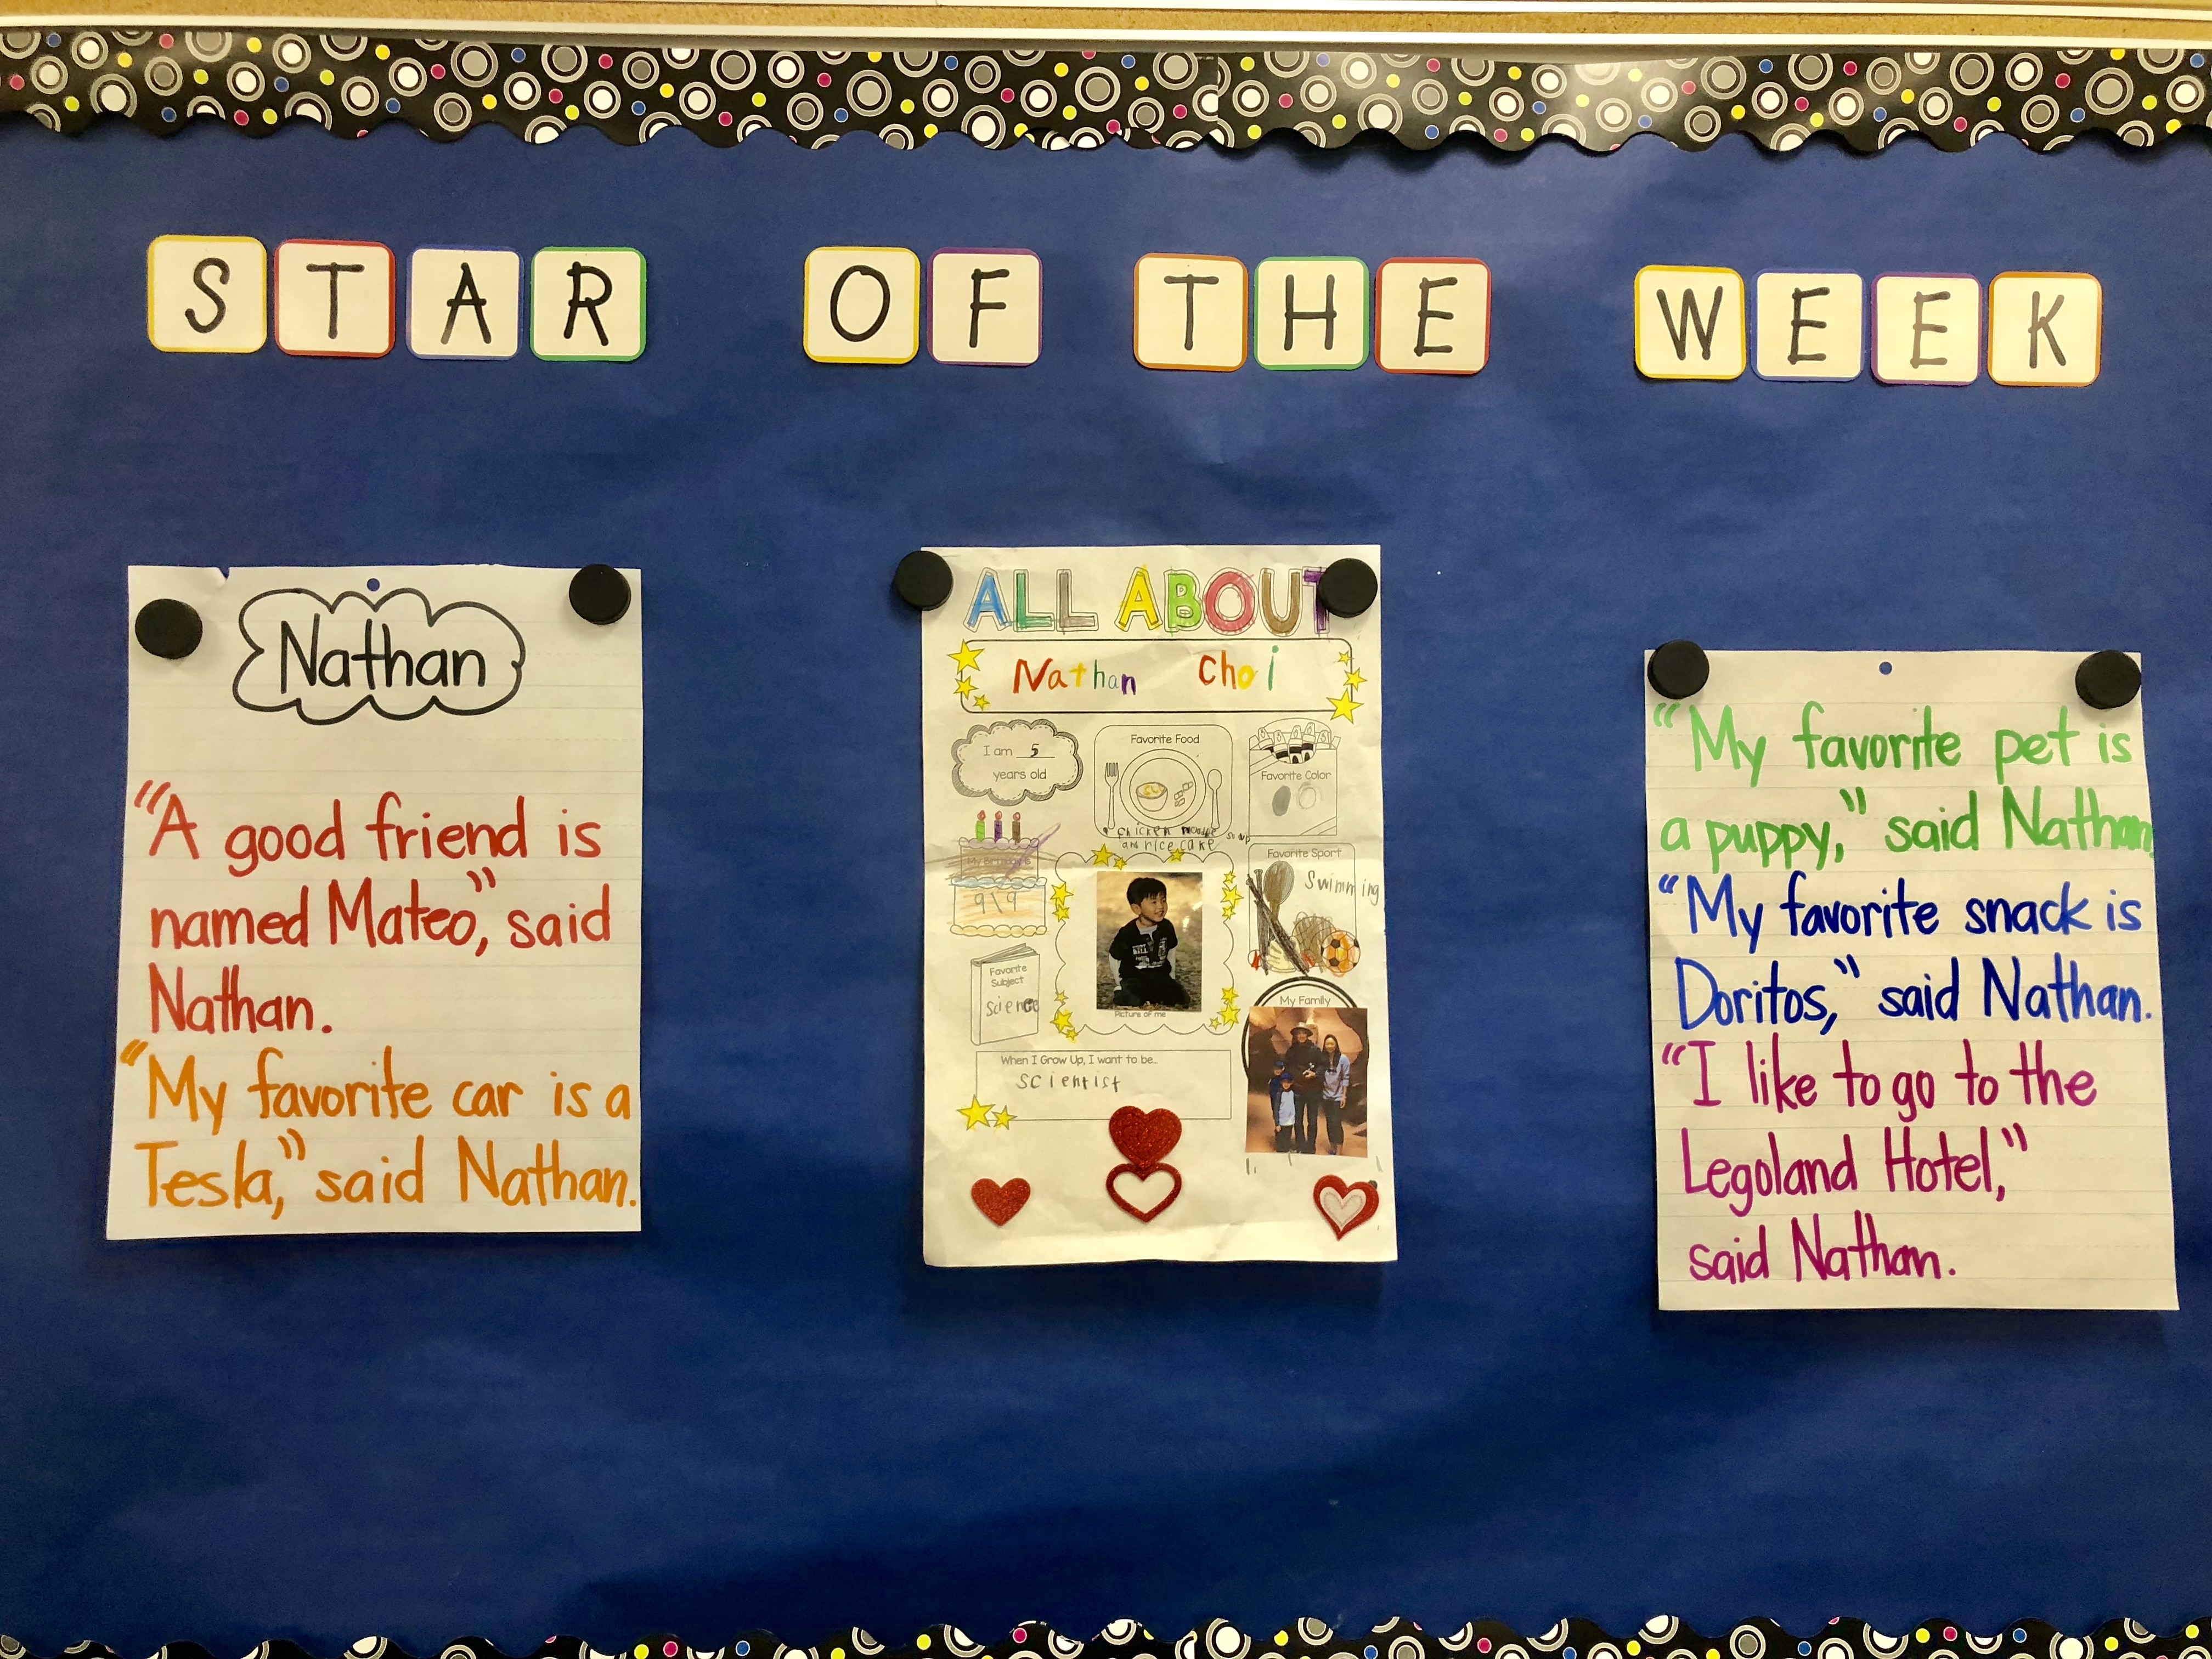 STAR OF THE WEEK
Nathan
"A good friend is
named Mateo," said
Nathan.
"My favorite car is a
Tesla," said Nathan.
ALL ABOUT
Nathan Choi
I am 5
years old
Favorite Food
chicken noodle soup
and rice cake
Favorite Color
My Birthday is
9\9
Favorite Sport
Swimming
Favorite
Subject
Science
Picture of me
My Family
When I Grow Up, I want to be...
scientist
"My favorite pet is
a puppy," said Nathan.
"My favorite snack is
Doritos," said Nathan.
"I like to go to the
Legoland Hotel,"
said Nathan.